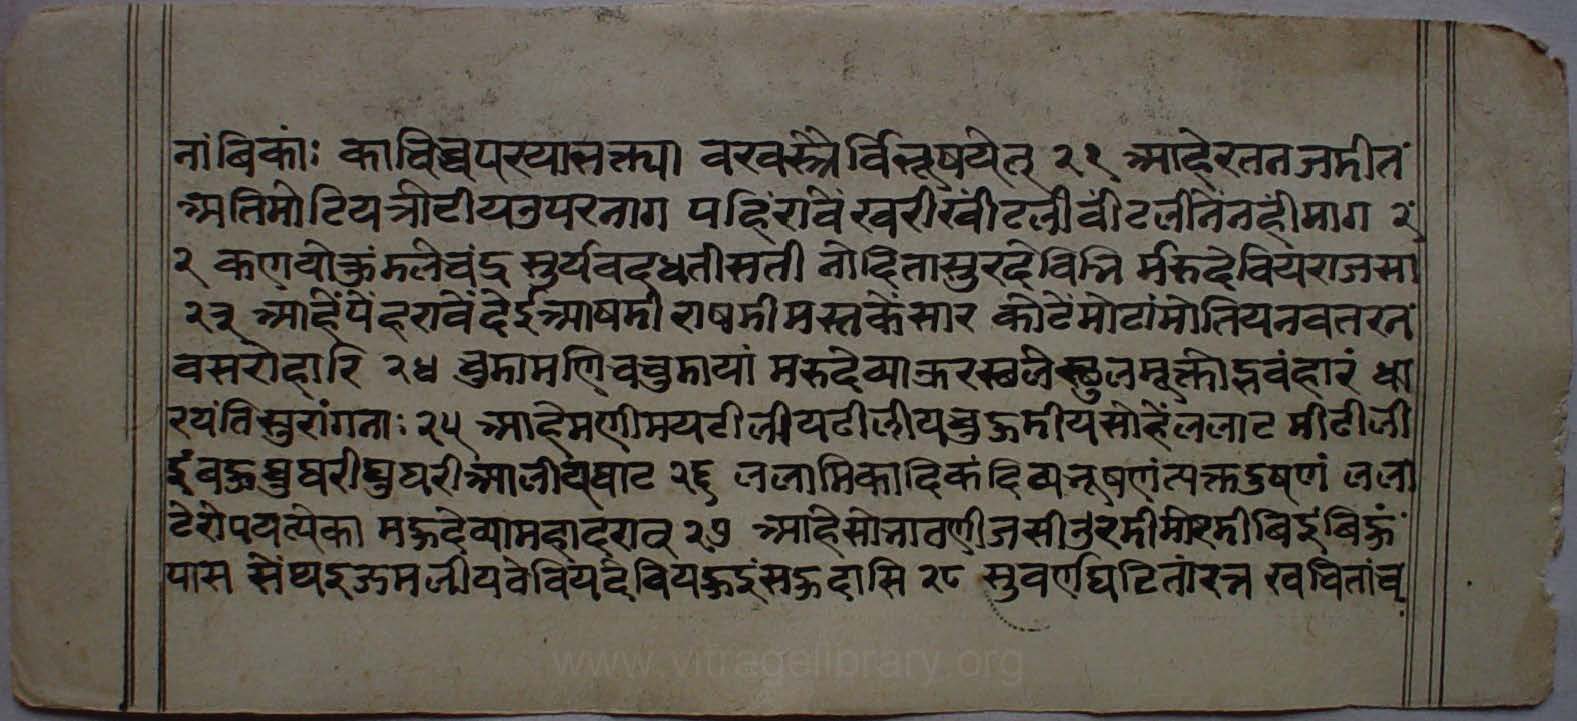 नांबिकां: काचिच्चपरयासक्त्या वरवस्त्रैर्विभूषयेत् २१ आहेरतनजडीत
अतिमोटियत्रीटीयउपरनाग पहिंरावें खरीखींटलीवींटलीनेनहीमाग २
२ कर्णयोकुंडलेचंद्र सुर्यवदधतीसती नोदितासुरदेविभि र्मरुदेवियराजसा
२३ आहेंपेंहरावेंदेईआषडी राषडीमस्तकेंसार कोटेंमोटांमोतियनवतरन
वसरोहारि २४ चुडामणिचचुडायां मरुदेव्याकरस्थले स्थुलमूक्तोद्भवंहारं धा
रयंतिसुरांगना: २५ आहेमणीमयटीलीयटीलीयचुकडीयसोहेंललाट मीटीली
इंवरुघुघरीघुघरीआलीयघाट २६ ललामिकादिकंदिव्यभूषणंत्यक्तदुषणं लला
टेरोपयत्येका मरुदेव्यामहादरात् २७ आहेसोनावर्णीजसीउरडीमोरडीबिइंबिरुं
पास सेंथइऊमलीयवेवियदेवियरुइंसरुदासि २८ सुवर्णघटितांरत्न खचितांच
www.vitragelibrary.org